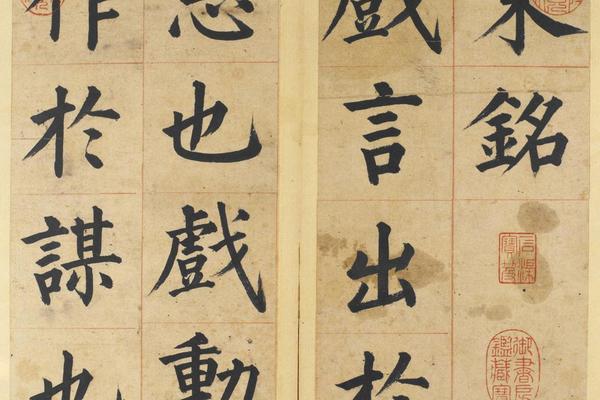 東銘
戲言出於
思也戲動
作於謀也
御書房
鑑藏寶